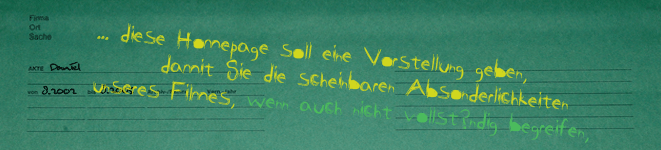 Firma
Ort
Sache
... diese Homepage soll eine Vorstellung geben,
AKTE Daniel
damit Sie die scheinbaren Absonderlichkeiten
VON 9.2002
unseres Filmes, wenn auch nicht vollst?ndig begreifen,